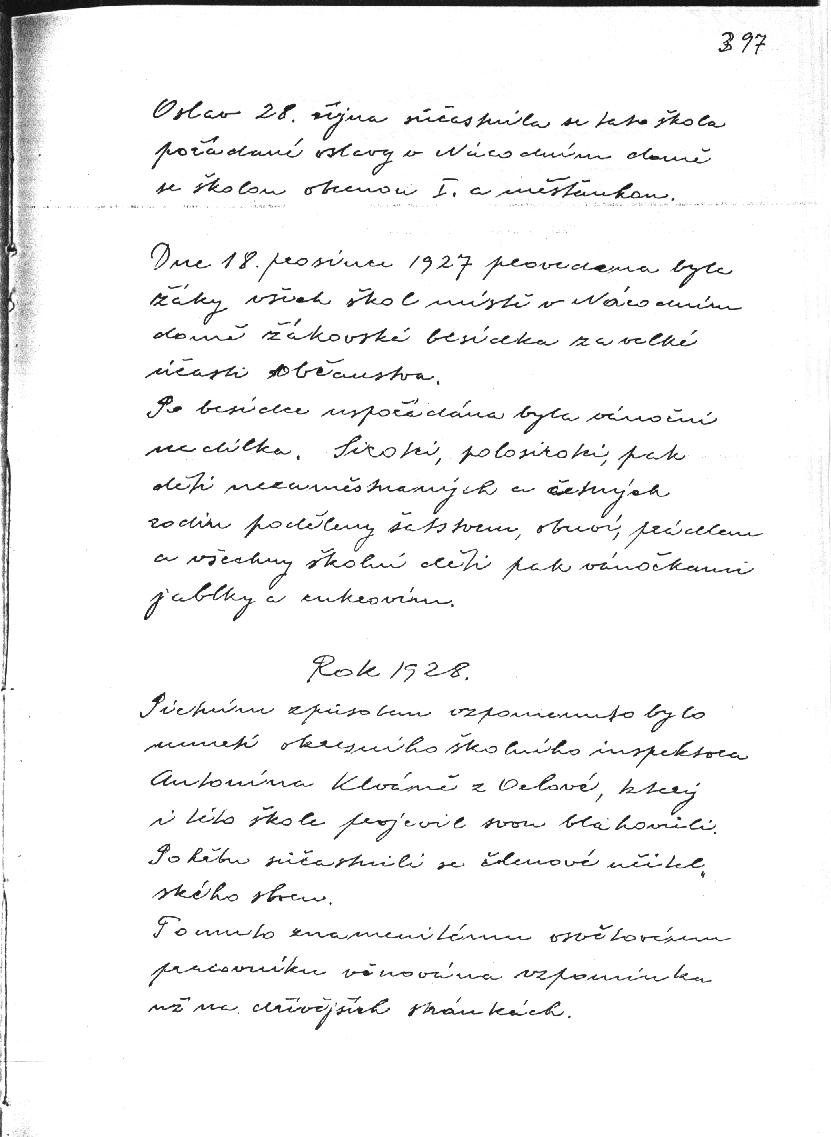 397
Oslav 28. října súčastnila se tato škola
pořádané oslavy v Národním domě
se školou obecnou I. a měšťankou.
Dne 18. prosince 1927 provedena byla
žáky všech škol místě v Národním
domě žákovská besídka za velké
účasti občanstva.
Po besídce uspořádána byla vánoční
nadílka. Sirotci, polosirotci, pak
děti nezaměstnaných a četných
rodin poděleny šatstvem, obuví, prádlem
a všechny školní děti pak vánočkami
jablky a cukrovím.
Rok 1928.
Pietním způsobem vzpomenuto bylo
úmrtí okresního školního inspektora
Antonína Klváně z Orlové, který
i této škole projevil svou blahovůli.
Pohřbu súčastnili se členové učitel„
ského sboru.
Tomuto znamenitému osvětovému
pracovníku věnována vzpomínka
už na dřívějších stránkách.